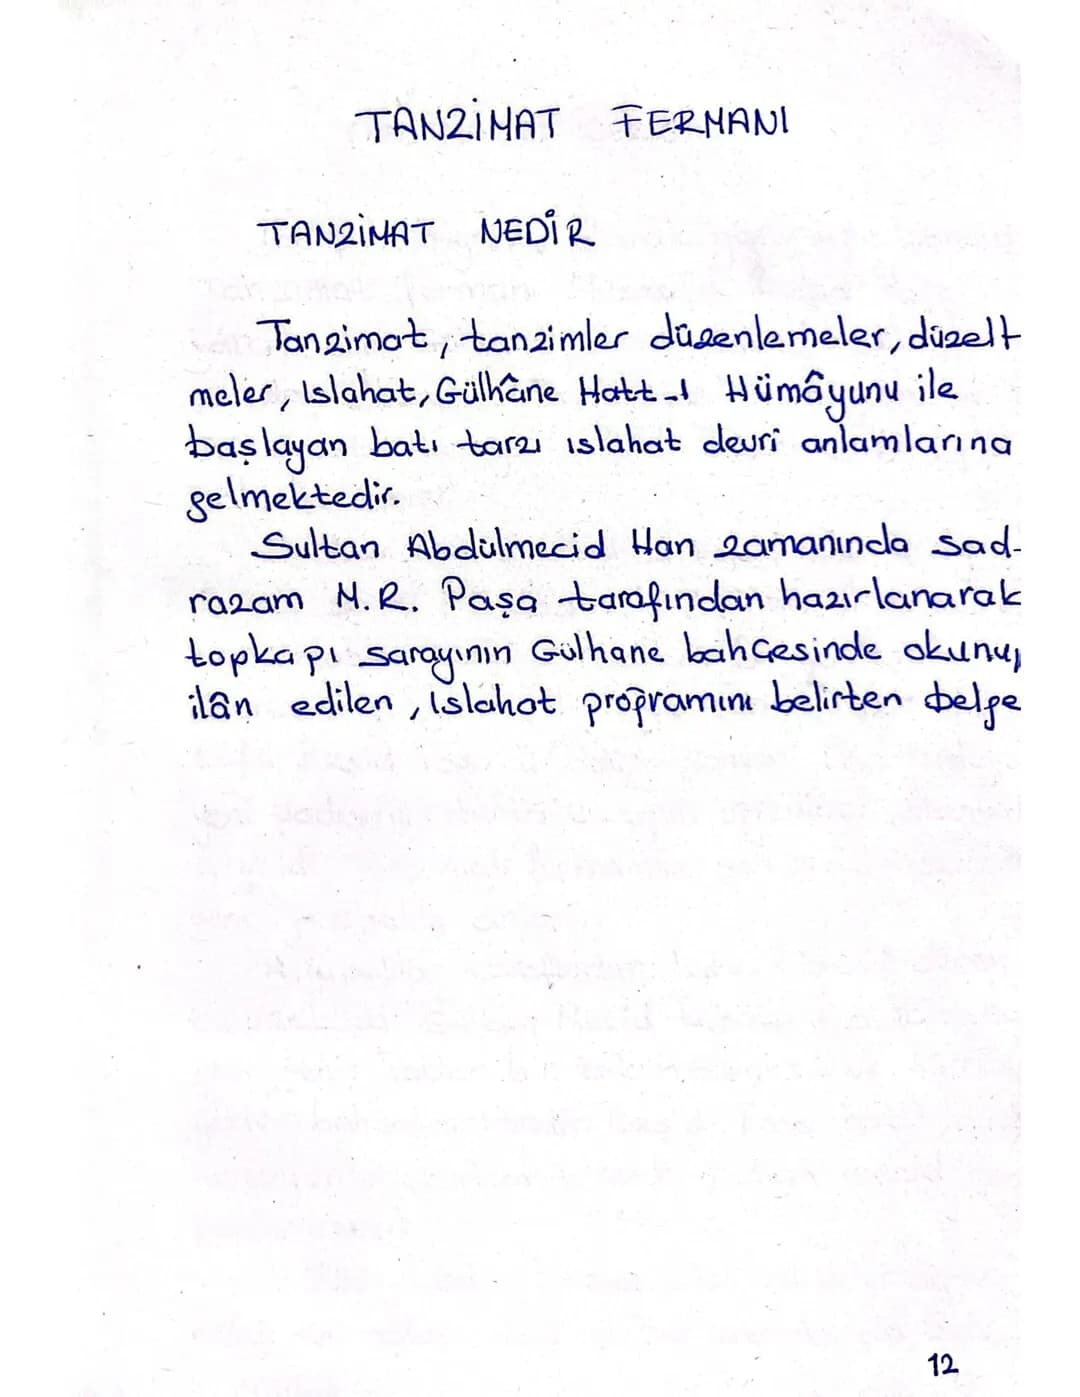 TANZİMAT FERMANI
TANZİMAT NEDİR
Tanzimat, tanzimler düzenlemeler, düzelt
meler, Islahat, Gülhâne Hatt-ı Hümâyunu ile
başlayan batı tarzı ıslahat devri anlamlarına
gelmektedir.
Sultan Abdülmecid Han zamanında sad-
razam M.R. Paşa tarafından hazırlanarak
topkapı sarayının Gülhane bahçesinde okunup
ilân edilen, ıslahat programını belirten belge
12